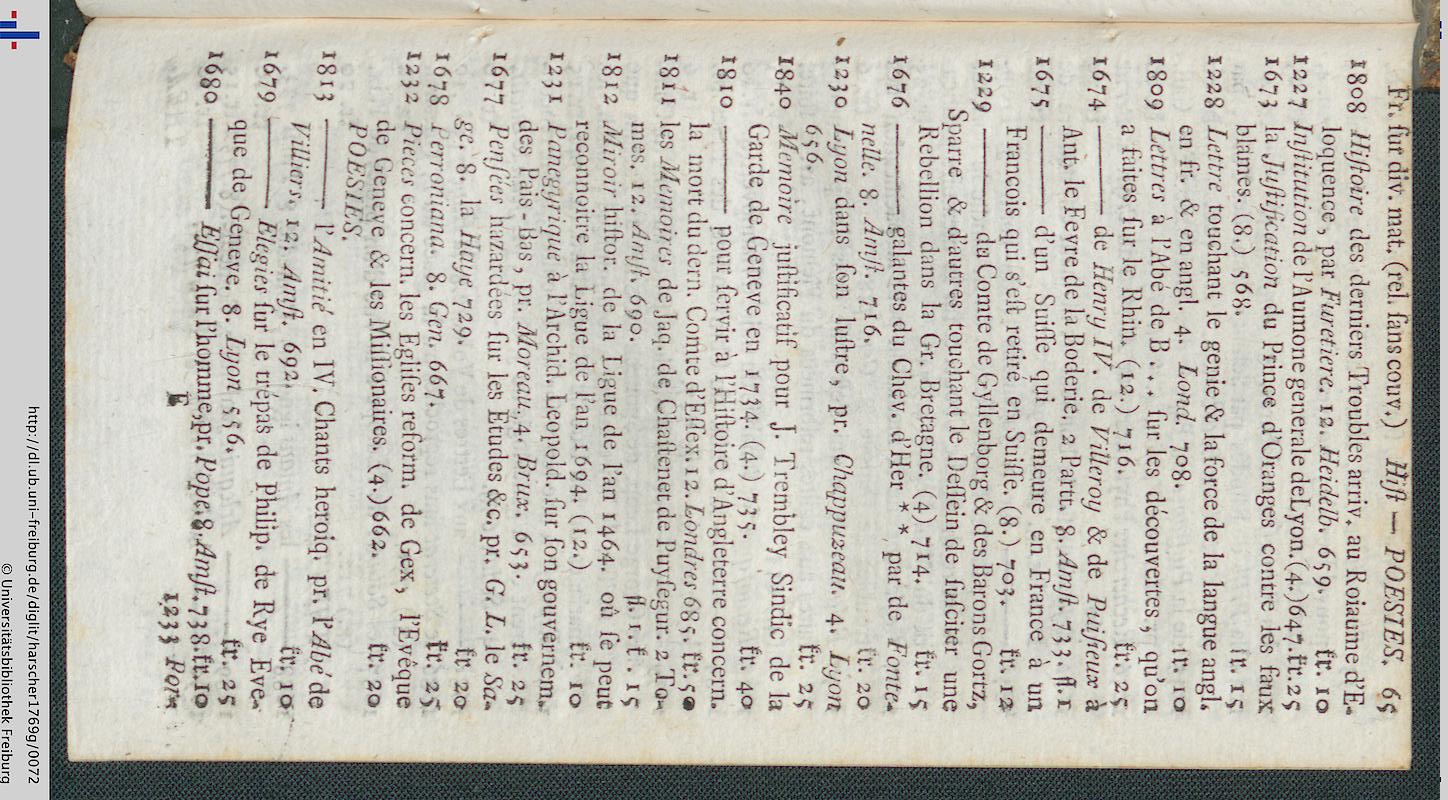 Fr. ſur div. mat. (rel. ſans couv.) Hiſt — POESIES. 65
1808 Hiſtoire des derniers Troubles arriv. au Roiaume d'E-
loquence, par Furetiere. 12. Heidelb. 659. ſr. 10
1227 Inſtitution de l'Aumone generale de Lyon. (4.) 647. ſr. 25
1673 la Juſtification du Prince d'Oranges contre les faux
blames. (8.) 568. ſr. 15
1228 Lettre touchant le genie & la force de la langue angl.
en fr. & en angl. 4. Lond. 708. ſr. 10
1809 Lettres à l'Abé de B... ſur les découvertes, qu'on
a faites ſur le Rhin. (12.) 716. ſr. 25
1674 —— de Henry IV. de Villeroy & de Puiſieux à
Ant. le Fevre de la Boderie. 2 Part. 8. Amſt. 733. fl. 1
1675 —— d'un Suiſſe qui demeure en France à un
Francois qui s'eſt retiré en Suiſſe. (8.) 703. ſr. 12
1229 —— du Comte de Gyllenborg & des Barons Gortz,
Sparre & d'autres touchant le Deſſein de ſuſciter une
Rebellion dans la Gr. Bretagne. (4) 714. ſr. 15
1676 —— galantes du Chev. d'Her * * par de Fonte-
nelle. 8. Amſt. 716. ſr. 20
1230 Lyon dans ſon luſtre, pr. Chappuzeau. 4. Lyon
656. ſr. 25
1840 Memoire juſtificatif pour J. Trembley Sindic de la
Garde de Geneve en 1734. (4.) 735. ſr. 40
1810 —— pour ſervir à l'Hiſtoire d'Angleterre concern.
la mort du dern. Comte d'Eſſex. 12. Londres 685. ſr. 50
1811 les Memoires de Jaq. de Chaſtenet de Puyſegur. 2 To-
mes. 12. Amſt. 690. fl. 1. ſ. 15
1812 Miroir hiſtor. de la Ligue de l'an 1464. où ſe peut
reconnoitre la Ligue de l'an 1694. (12.) ſr. 10
1231 Panegyrique à l'Archid. Leopold. ſur ſon gouvernem.
des Pais-Bas, pr. Moreau. 4. Brux. 653. ſr. 25
1677 Penſées hazardées ſur les Etudes &c. pr. G. L. le Sa-
ge. 8. la Haye 729. ſr 20
1678 Perroniana. 8. Gen. 667. ſr. 25
1232 Pieces concern. les Egliſes reform. de Gex, l'Evêque
de Geneve & les Miſſionaires. (4.) 662. ſr. 20
POESIES.
1813 —— l'Amitié en IV. Chants heroiq. pr. l'Abé de
Villiers. 12. Amſt. 692. ſr. 10
1679 —— Elegies ſur le trépas de Philip. de Rye Eve-
que de Geneve. 8. Lyon 556. ſr. 25
1680 —— Eſſai ſur l'homme, pr. Pope. 8. Amſt. 738. ſr. 10
E
1233 Por-
http://dl.ub.uni-freiburg.de/diglit/harscher1769g/0072
© Universitätsbibliothek Freiburg